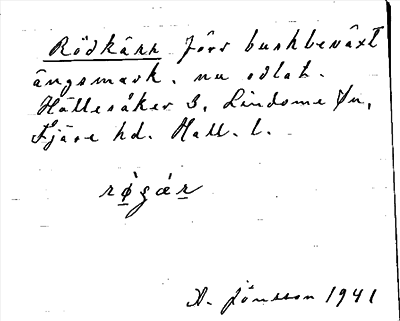 Rödkärr förr buskbeväxt
ängsmark. nu odlat.
Hällesåker 3, Lindome sn,
Fjäre hd. Hall. l.
rø̀gǽr
A. Jönsson 1941